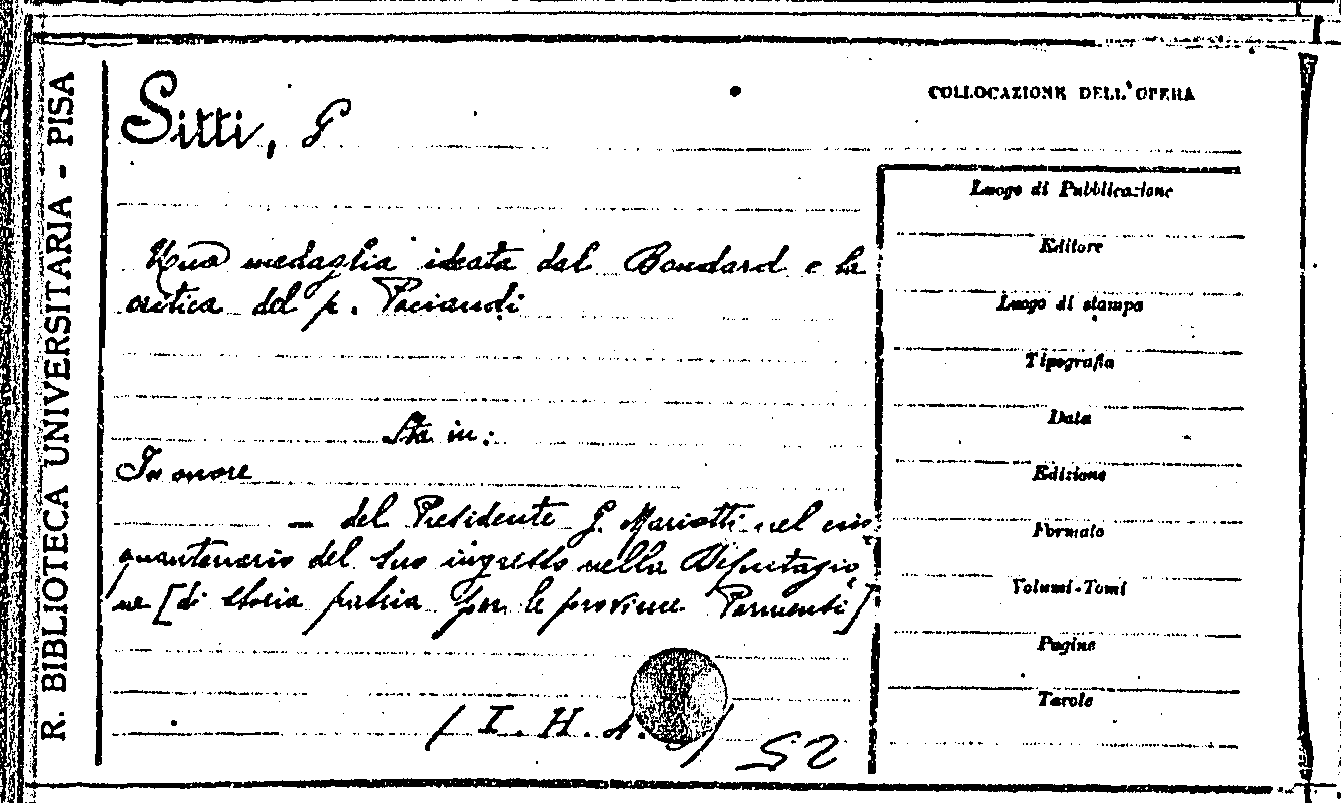 R. BIBLIOTECA UNIVERSITARIA - PISA
Sitti, G
COLLOCAZIONE DELL'OPERA
Una medaglia ideata dal Boudard e la
critica del p. Paciaudi
Sta in:
In onore
— del Presidente G. Mariotti nel cin
quantenario del suo ingresso nella Deputazio
ne [di storia patria per le province Parmensi]
( I. H. 4. )
52
Luogo di Pubblicazione
Editore
Luogo di stampa
Tipografia
Data
Edizione
Formato
Volumi-Tomi
Pagine
Tavole